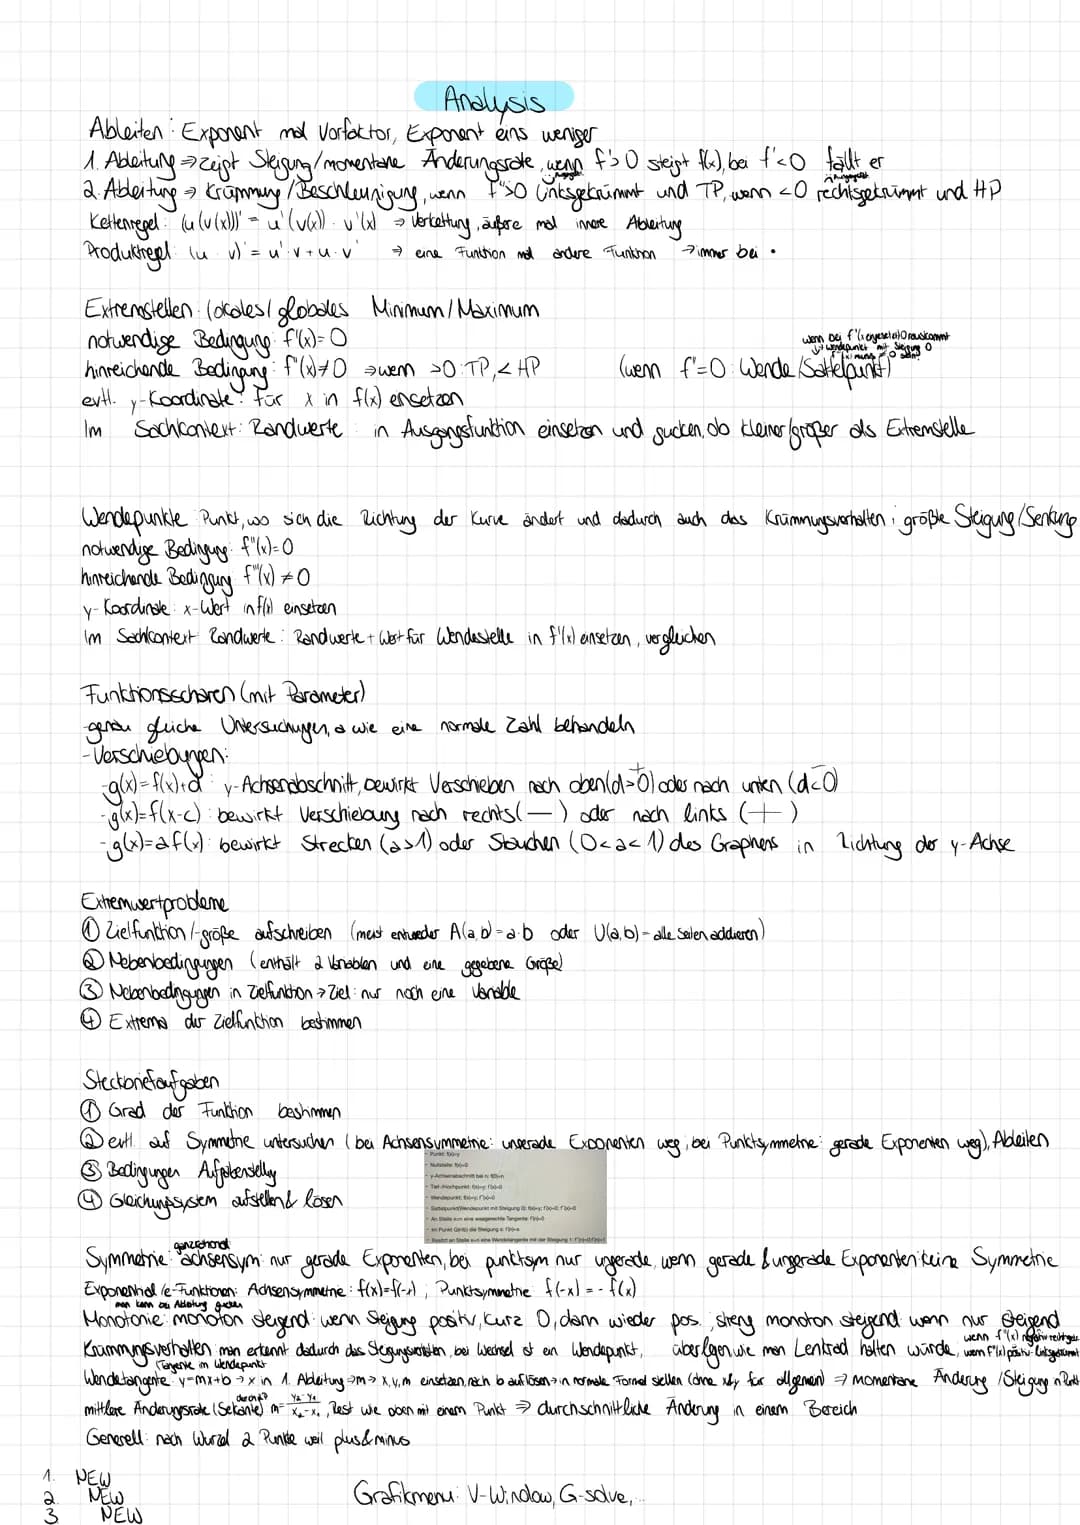 Analysis
Ableiten: Exponent mal Vorfaktor, Exponent eins weniger
1. Ableitung ⇒ zeigt Steigung/momentane Änderungsrate, wenn f'>0 steigt f(x), bei f'<0 fällt er
2. Ableitung → Krümmung/Beschleunigung, wenn f''>0 linksgekrümmt und TP, wenn <0 rechtsgekrümmt und HP
Kettenregel: (u(v(x)))' = u'(v(x)) · v'(x) → Verkettung, äußere mal innere Ableitung
Produktregel: (u · v)' = u' · v + u · v' → eine Funktion mal andere Funktion → immer bei •
Extremstellen: lokales/globales Minimum/Maximum
notwendige Bedingung: f'(x)=0
wenn bei f''(x) eingesetzt 0 rauskommt
hinreichende Bedingung: f''(x)≠0 ⇒ wenn >0: TP, < HP (wenn f''=0: Wende/Sattelpunkt)
evtl. y-Koordinate: für x in f(x) einsetzen
Im Sachkontext: Randwerte in Ausgangsfunktion einsetzen und gucken, ob kleiner/größer als Extremstelle
Wendepunkte Punkt, wo sich die Richtung der Kurve ändert und dadurch auch das Krümmungsverhalten; größte Steigung/Senkung
notwendige Bedingung: f''(x)=0
hinreichende Bedingung f'''(x) ≠ 0
y-Koordinate: x-Wert in f(x) einsetzen
Im Sachkontext Randwerte: Randwerte + Wert für Wendestelle in f'(x) einsetzen, vergleichen
Funktionsscharen (mit Parameter)
-genau gleiche Untersuchungen, a wie eine normale Zahl behandeln
-Verschiebungen:
-g(x)=f(x)+d: y-Achsenabschnitt, bewirkt Verschieben nach oben (d>0) oder nach unten (d<0)
-g(x)=f(x-c): bewirkt Verschiebung nach rechts (—) oder nach links (+)
-g(x)=a f(x): bewirkt Strecken (a>1) oder Stauchen (0<a<1) des Graphens in Richtung der y-Achse
Extremwertprobleme
① Zielfunktion/-größe aufschreiben (meist entweder A(a,b)=a·b oder U(a,b)=alle Seiten addieren)
② Nebenbedingungen (enthält 2 Variablen und eine gegebene Größe)
③ Nebenbedingungen in Zielfunktion → Ziel: nur noch eine Variable
④ Extrema der Zielfunktion bestimmen
Steckbriefaufgaben
① Grad der Funktion bestimmen
② evtl. auf Symmetrie untersuchen (bei Achsensymmetrie: ungerade Exponenten weg, bei Punktsymmetrie: gerade Exponenten weg), Ableiten
- Punkt: f(x)=y
③ Bedingungen Aufgabenstellung
- Nullstelle: f(x)=0
④ Gleichungssystem aufstellen & lösen
Symmetrie: ganzrational: achsensym: nur gerade Exponenten, bei punktsym nur ungerade, wenn gerade & ungerade Exponenten: keine Symmetrie
Exponential/e-Funktionen: Achsensymmetrie: f(x)=f(-x); Punktsymmetrie: f(-x) = -f(x)
man kann bei Ableitung gucken
Monotonie: monoton steigend: wenn Steigung positiv, kurz 0, dann wieder pos.; streng monoton steigend: wenn nur steigend
Krümmungsverhalten: man erkennt dadurch das Steigungsverhalten, bei Wechsel ist ein Wendepunkt, überlegen, wie man Lenkrad halten würde, wenn f''(x) negativ-rechtsgekr. wenn f''(x) positiv-linksgekrümmt
Tangente im Wendepunkt
Wendetangente: y=mx+b → x in 1. Ableitung → m → x, y, m einsetzen, nach b auflösen → in normale Formel stellen (ohne x&y für allgemein) ⇒ momentane Änderung/Steigung
mittlere Änderungsrate (Sekante) m= y₂-y₁ / x₂-x₁, Rest wie oben mit einem Punkt ⇒ durchschnittliche Änderung in einem Bereich
Generell: nach Wurzel 2 Punkte weil plus & minus
1. NEW
2. NEW
3 NEW
Grafikmenu: V-Window, G-solve,...